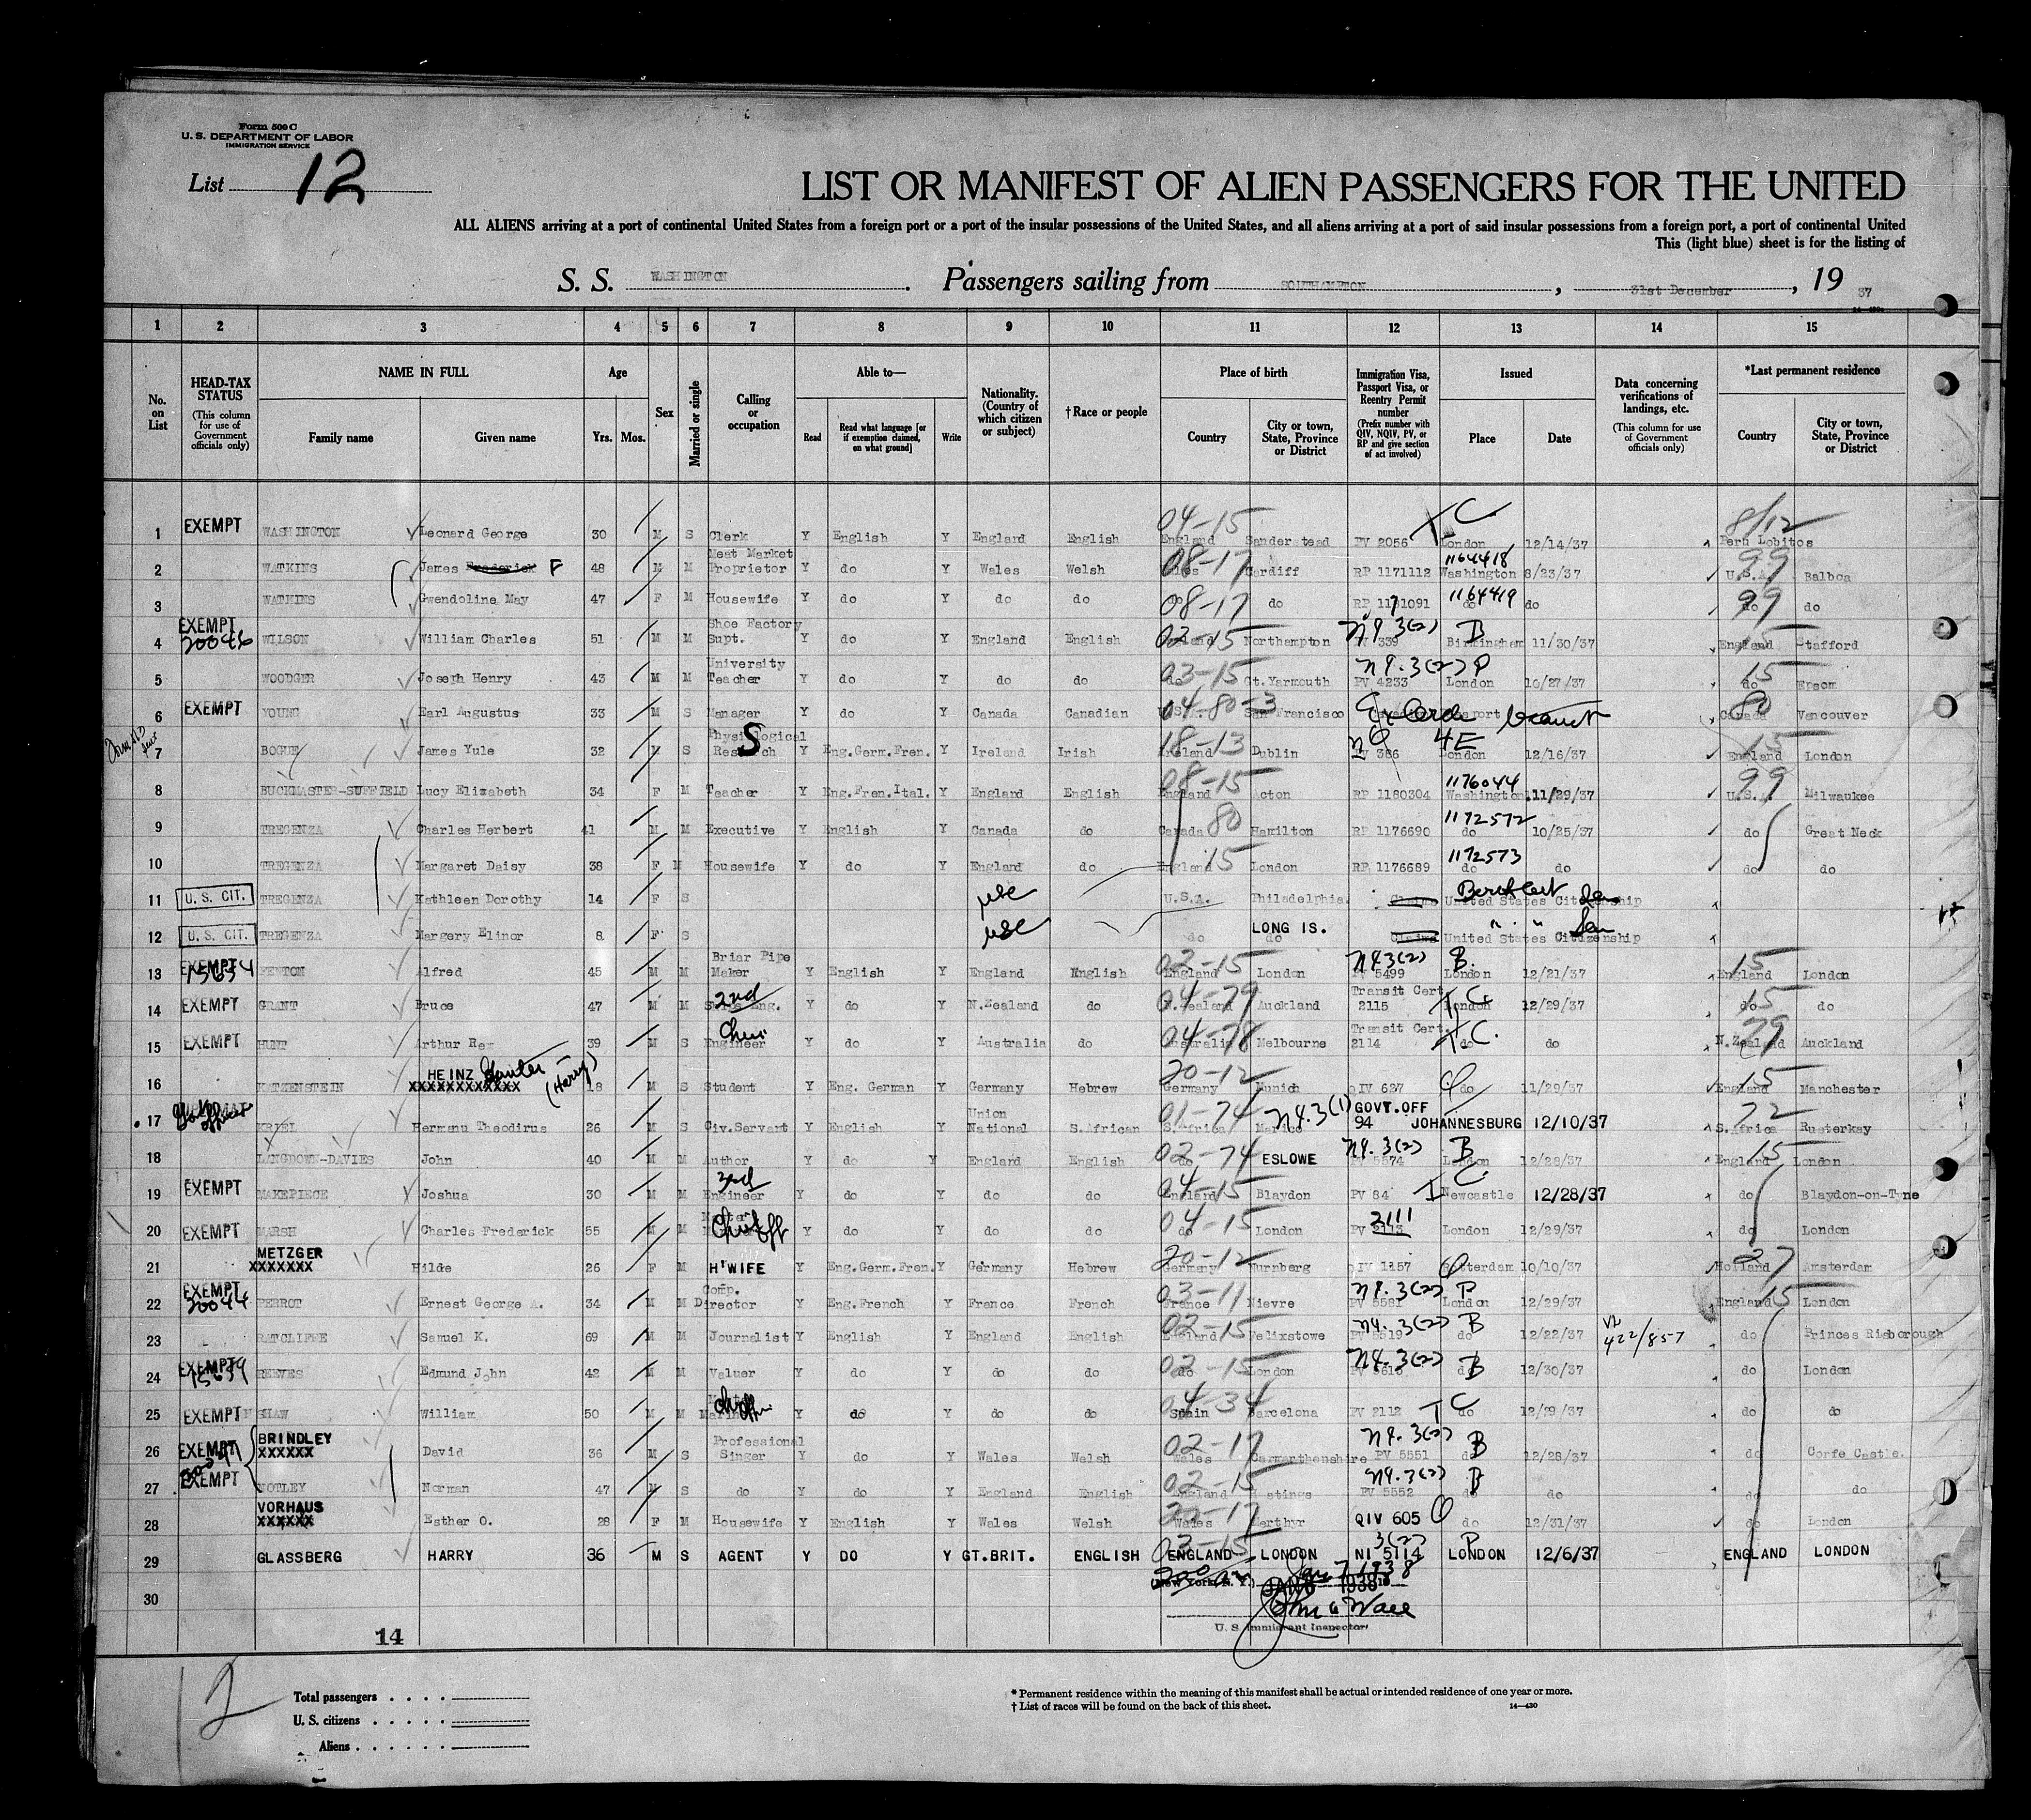 Form 500 C
U. S. DEPARTMENT OF LABOR
IMMIGRATION SERVICE
List 12
LIST OR MANIFEST OF ALIEN PASSENGERS FOR THE UNITED
ALL ALIENS arriving at a port of continental United States from a foreign port or a port of the insular possessions of the United States, and all aliens arriving at a port of said insular possessions from a foreign port, a port of continental United
This (light blue) sheet is for the listing of
S. S. WASHINGTON. Passengers sailing from SOUTHAMPTON, 31st December, 19 37
1 2 3 4 5 6 7 8 9 10 11 12 13 14 15
No. on List
HEAD-TAX STATUS (This column for use of Government officials only)
NAME IN FULL
Family name Given name
Age Yrs. Mos.
Sex
Married or single
Calling or occupation
Able to—
Read Read what language [or if exemption claimed, on what ground] Write
Nationality. (Country of which citizen or subject)
†Race or people
Place of birth
Country City or town, State, Province or District
Immigration Visa, Passport Visa, or Reentry Permit number (Prefix number with QIV, NQIV, PV, or RP and give section of act involved)
Issued
Place Date
Data concerning verifications of landings, etc. (This column for use of Government officials only)
*Last permanent residence
Country City or town, State, Province or District
1 EXEMPT WASHINGTON Leonard George 30 M S Clerk Y English Y England English 04-15 England Sanderstead PV 2056 TC London 12/14/37 8/12 Peru Lobitos
2 WATKINS James Frederick F 48 M M Meat Market Proprietor Y do Y Wales Welsh 08-17 Cardiff RP 1171112 1164418 Washington 8/23/37 99 U.S.A. Balboa
3 WATKINS Gwendoline May 47 F M Housewife Y do Y do do 08-17 do RP 1181091 1164419 do do 99 do do
4 EXEMPT 20046 WILSON William Charles 51 M M Shoe Factory Supt. Y do Y England English 02-15 Northampton 3(2) 339 B Birmingham 11/30/37 15 England Stafford
5 WOODGER Joseph Henry 43 M M University Teacher Y do Y do do 03-15 Gt.Yarmouth 3(2) P PV 4233 London 10/27/37 15 do Epsom
6 EXEMPT YOUNG Earl Augustus 33 M S Manager Y do Y Canada Canadian 04-80-3 San Francisco 80 Canada Vancouver
7 BOGUE James Yule 32 M S Physiological Research S Y Eng.Germ.Fren. Y Ireland Irish 18-13 Ireland Dublin 386 4E London 12/16/37 15 England London
8 BUCKMASTER-SUFFIELD Lucy Elizabeth 34 F M Teacher Y Eng.Fren.Ital. Y England English 08-15 England Acton RP 1180304 1176044 Washington 11/29/37 99 U.S.A. Milwaukee
9 TREGENZA Charles Herbert 41 M M Executive Y English Y Canada do Canada 80 Hamilton RP 1176690 1172572 do 10/25/37 do Great Neck
10 TREGENZA Margaret Daisy 38 F M Housewife Y do Y England do England 15 London RP 1176689 1172573 do do do do
11 U. S. CIT. TREGENZA Kathleen Dorothy 14 F S USC U.S.A. Philadelphia Claims United States Citizenship
12 U. S. CIT. TREGENZA Margery Elinor 8 F S USC do do LONG IS. Claims United States Citizenship
13 EXEMPT 15654 FENTON Alfred 45 M M Briar Pipe Maker Y English Y England English 02-15 England London 3(2) 5499 B. London 12/21/37 15 England London
14 EXEMPT GRANT Bruce 47 M M 2nd Eng. Y do Y N.Zealand do 04-79 N.Zealand Auckland Transit Cert. 2115 TC London 12/29/37 15 do do
15 EXEMPT HUNT Arthur Rex 39 M S Engineer Y do Y Australia do 04-78 Australia Melbourne Transit Cert. 2114 TC. do do 79 N.Zealand Auckland
16 KATZENSTEIN HEINZ Gunter (Harry) XXXXXXXXXXXX 18 M S Student Y Eng. German Y Germany Hebrew 20-12 Germany Munich QIV 627 do 11/29/37 15 England Manchester
17 KRIEL Hermanu Theodirus 26 M S Civ.Servant Y English Y Union National S.African 01-74 S.Africa 3(1) GOVT.OFF 94 JOHANNESBURG 12/10/37 72 S.Africa Rusterkay
18 LANGDOWN-DAVIES John 40 M M Author Y do Y England English 02-74 do ESLOWE 3(2) 5574 B London 12/28/37 15 England London
19 EXEMPT MAKEPIECE Joshua 30 M M 3rd Engineer Y do Y do do 04-15 England Blaydon PV 84 TC Newcastle 12/28/37 do Blaydon-on-Tyne
20 EXEMPT MARSH Charles Frederick 55 M M Y do Y do do 04-15 do London 2111 PV 2113 London 12/29/37 do London
21 METZGER XXXXXXX Hilde 26 F M H'WIFE Y Eng.Germ.Fren. Y Germany Hebrew 20-12 Germany Nurnberg QIV 1257 Rotterdam 10/10/37 27 Holland Amsterdam
22 EXEMPT 20044 PERROT Ernest George A. 34 M M Comp. Director Y Eng.French Y France French 03-11 France Nievre 3(2) 5581 P London 12/29/37 15 England London
23 RATCLIFFE Samuel K. 69 M M Journalist Y English Y England English 02-15 England Felixstowe 3(2) 5519 B do 12/22/37 422/857 do Princes Risborough
24 EXEMPT 15659 REEVES Edmund John 42 M M Valuer Y do Y do do 02-15 do London 3(2) 5616 B do 12/30/37 do London
25 EXEMPT SHAW William 50 M M Y do Y do do 04-34 Spain Barcelona PV 2112 TC do 12/29/37 do do
26 EXEMPT BRINDLEY XXXXXX David 36 M S Professional Singer Y do Y Wales Welsh 02-17 Wales Carmarthenshire 3(2) PV 5551 B do 12/28/37 do Corfe Castle.
27 EXEMPT NOTLEY Norman 47 M S do Y do Y England English 02-15 England Hastings 3(2) PV 5552 B do do do do
28 VORHAUS XXXXXX Esther O. 28 F M Housewife Y English Y Wales Welsh 20-17 Wales Merthyr QIV 605 do 12/31/37 do London
29 GLASSBERG HARRY 36 M S AGENT Y DO Y GT.BRIT. ENGLISH 03-15 ENGLAND LONDON 3(2) NI 5114 P LONDON 12/6/37 ENGLAND LONDON
30
(New York, N. Y.) Jan 7 1938
U. S. Immigrant Inspector
14
2
Total passengers
U. S. citizens
Aliens
* Permanent residence within the meaning of this manifest shall be actual or intended residence of one year or more.
† List of races will be found on the back of this sheet.
14—430